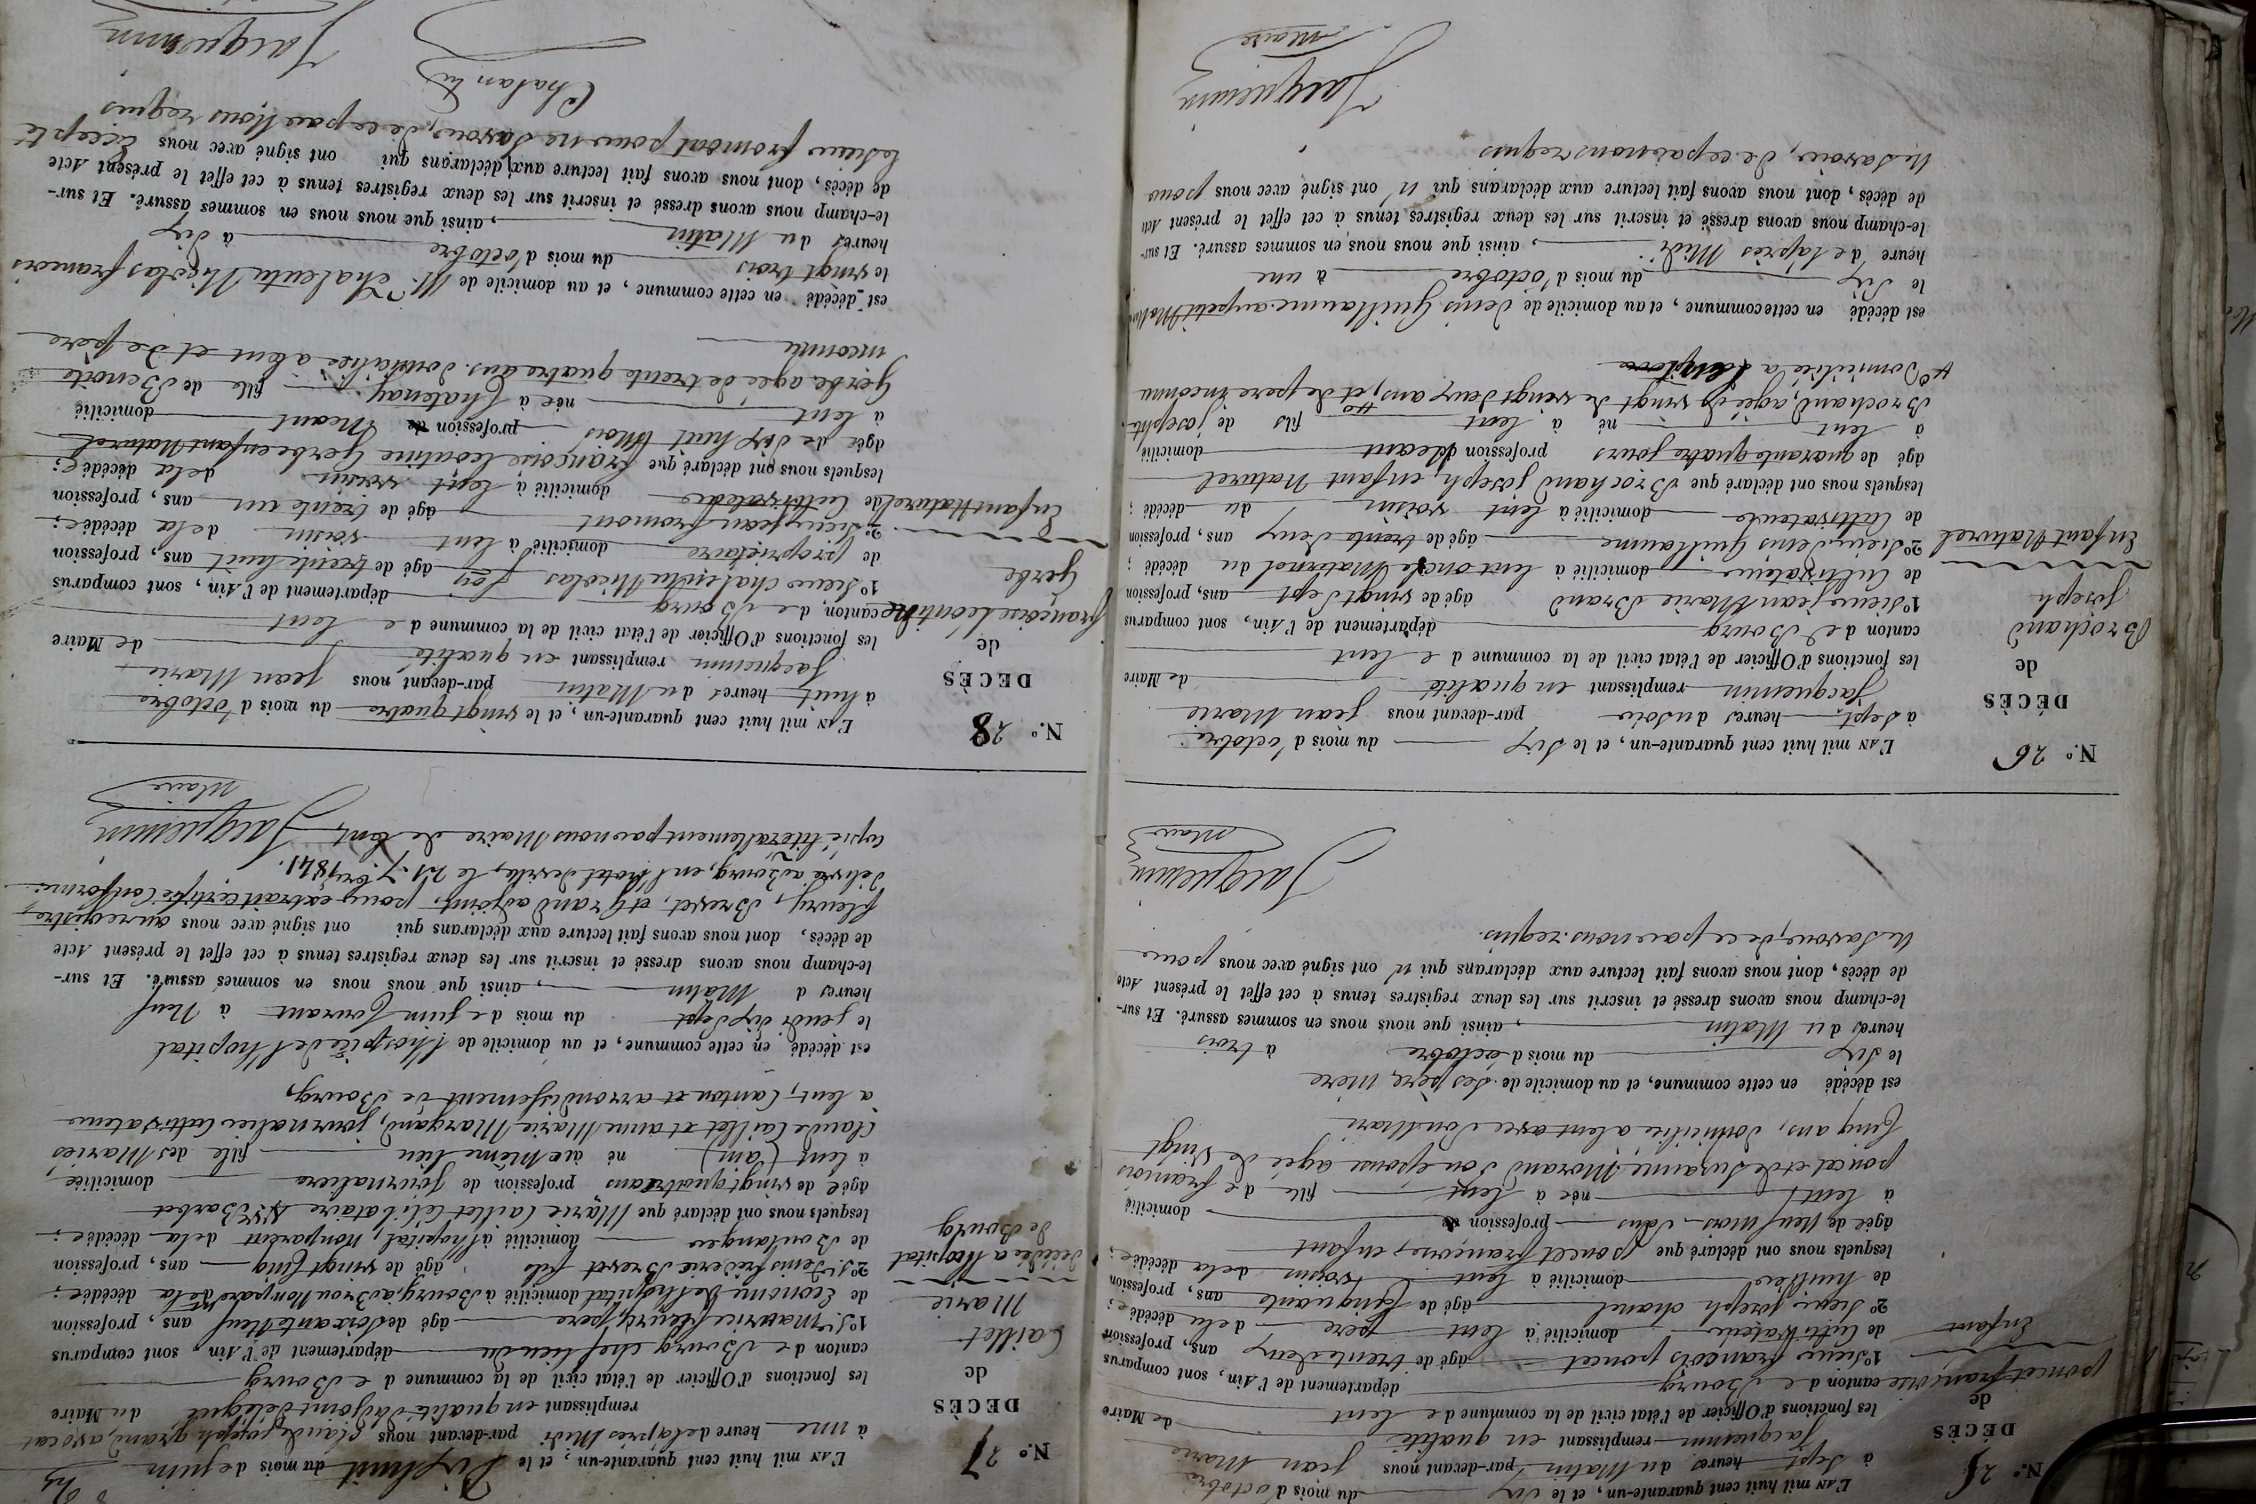 N.º 25
DÉCÈS
de
poncet françoise
Enfant
L'AN mil huit cent quarante-un, et le dix du mois d'octobre
à sept heures du Matin par-devant nous jean Marie
Jacquemin remplissant en qualité de Maire
les fonctions d'Officier de l'état civil de la commune de lent
canton de Bourg département de l'Ain, sont comparus
1º sieur françois poncet âgé de trente deux ans, profession
de Cultivateur domicilié à lent père de la décédée;
2º sieur joseph chanel âgé de Cinquante ans, profession
de huissier domicilié à lent voisin de la décédée;
lesquels nous ont déclaré que poncet françoise, enfant
âgée de Neuf mois sans profession domicilié
à lent née à lent fille de françois
poncet et de Suzanne Morand son épouse agée de vingt
Cinq ans, domiciliée a lent avec son Mari
est décédé en cette commune, et au domicile de ses père, mère
le dix du mois d'octobre à trois
heures du Matin, ainsi que nous nous en sommes assuré. Et sur-
le-champ nous avons dressé et inscrit sur les deux registres tenus à cet effet le présent Acte
de décès, dont nous avons fait lecture aux déclarans qui n'ont signé avec nous pour
Ne savoir, de ce par nous requis.
Jacquemin
Maire
N.º 26
DÉCÈS
de
Brochand
joseph
Enfant Naturel
L'AN mil huit cent quarante-un, et le dix du mois d'octobre
à sept heures du soir par-devant nous jean Marie
Jacquemin remplissant en qualité de Maire
les fonctions d'Officier de l'état civil de la commune de lent
canton de Bourg département de l'Ain, sont comparus
1º sieur jean Marie Brand âgé de vingt sept ans, profession
de Cultivateur domicilié à lent oncle Maternel du décédé;
2º sieur denis Guillaume âgé de trente deux ans, profession
de Cultivateur domicilié à lent voisin du décédé;
lesquels nous ont déclaré que Brochand joseph, enfant Naturel
âgé de quarante quatre jours profession Néant domicilié
à lent né à lent fils de josephte
Brochand, agée de vingt de vingt deux ans, et de père inconnu
Domiciliée a
est décédé en cette commune, et au domicile de denis Guillaume au petit
le dix du mois d'octobre à une
heure de l'après Midi, ainsi que nous nous en sommes assuré. Et sur-
le-champ nous avons dressé et inscrit sur les deux registres tenus à cet effet le présent Acte
de décès, dont nous avons fait lecture aux déclarans qui n'ont signé avec nous pour
Ne savoir, de ce par nous requis
Jacquemin
Maire
N.º 27
DÉCÈS
de
Caillet
Marie
décédée a l'hôpital
de Bourg
L'AN mil huit cent quarante-un, et le Dixhuit du mois de juin
à une heure de l'après Midi par-devant nous Claude joseph grand, avocat
remplissant en qualité d'adjoint délégué du Maire
les fonctions d'Officier de l'état civil de la commune de Bourg
canton de Bourg chef lieu du département de l'Ain, sont comparus
1º Sr. Maurice fleury, père âgé de soixante Neuf ans, profession
de Econome de l'hôpital domicilié à Bourg, à Brou Non parent de la décédée;
2º Sr. denis frédéric Brevet fils âgé de vingt Cinq ans, profession
de Boulanger domicilié à l'hôpital, non parent de la décédée;
lesquels nous ont déclaré que Marie Caillet Célibataire Barbet
âgée de vingt quatre ans profession de journalière domiciliée
à lent (ain) né au Même lieu fille des Mariés
Claude Caillet et anne Marie Margand, journalier Cultivateur
à lent, Canton et arrondissement de Bourg,
est décédé en cette commune, et au domicile de l'hospice de l'hopital
le jeudi dix sept du mois de juin Courant à Neuf
heures du Matin, ainsi que nous nous en sommes assuré. Et sur-
le-champ nous avons dressé et inscrit sur les deux registres tenus à cet effet le présent Acte
de décès, dont nous avons fait lecture aux déclarans qui ont signé avec nous au registre,
fleury, Brevet, et Grand adjoint, pour extrait certifié Conforme
délivré à Bourg, en l'hotel deville, le 21 7bre 1841.
Copié littérallement par nous Maire de lent, Jacquemin
Maire
N.º 28
DÉCÈS
de
françoise leontine
Gerbe
Enfant Naturel
L'AN mil huit cent quarante-un, et le vingt quatre du mois d'octobre
à huit heures du Matin par-devant nous jean Marie
Jacquemin remplissant en qualité de Maire
les fonctions d'Officier de l'état civil de la commune de lent
canton de Bourg département de l'Ain, sont comparus
1º sieur Chalentu Nicolas foix âgé de trente huit ans, profession
de propriétaire domicilié à lent voisin de la décédée;
2º sieur jean fromont âgé de trente un ans, profession
de Cultivateur domicilié à lent voisin de la décédée;
lesquels nous ont déclaré que françoise leontine Gerbe enfant Naturel
âgée de dix huit Mois profession de Néant domicilié
à lent née à Chatenay fille de Benoite
Gerbe agée de trente quatre ans. domiciliée a lent et de père
inconnu
est décédé en cette commune, et au domicile de Mr. Chalentu Nicolas françois
le vingt trois du mois d'octobre à dix
heures du Matin, ainsi que nous nous en sommes assuré. Et sur-
le-champ nous avons dressé et inscrit sur les deux registres tenus à cet effet le présent Acte
de décès, dont nous avons fait lecture aux déclarans qui ont signé avec nous Excepté
le sieur fromont pour ne savoir, de ce par Nous requis
Chalentu
Jacquemin